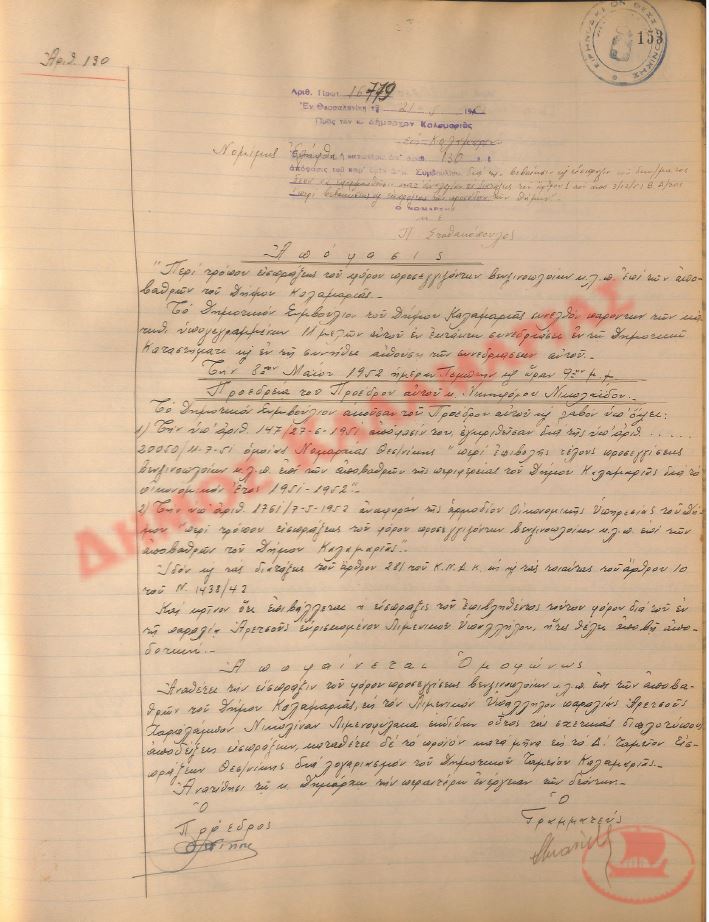 ΕΙΡΗΝΟΔΙΚΕΙΟΝ ΘΕΣΣΑΛΟΝΙΚΗΣ
153
Ἀριθ. 130
Αριθ. Πρωτ. 16779
Ἐν Θεσσαλονίκῃ τῇ 21-5-195
Πρὸς τὸν κ. Δήμαρχον Καλαμαριᾶς
εἰς Καλαμαριάν
Νομίμως ἐλήφθη ἡ κατωτέρω ὑπ' ἀριθ. 130 ἔ. ἔ.
ἀπόφασις τοῦ παρ' ὑμῖν Δημ. Συμβουλίου
Ο ΝΟΜΑΡΧΗΣ
μ. ἐ.
Π. Σταθακόπουλος
Ἀπόφασις
"Περὶ τρόπου εἰσπράξεως τοῦ φόρου προσεγγιζόντων βενζινοπλοίων κ.λ.π. ἐπὶ τῶν ἀπο-
βαθρῶν τοῦ Δήμου Καλαμαριᾶς.-
Τὸ Δημοτικὸν Συμβούλιον τοῦ Δήμου Καλαμαριᾶς συνελθὸν παρόντων τῶν κά-
τωθι ὑπογεγραμμένων 11 μελῶν αὐτοῦ ἐν ἐκτάκτῳ συνεδριάσει ἐν τῷ Δημοτικῷ
Καταστήματι κ ἐν τῇ συνήθει αἰθούσῃ τῶν συνεδριάσεων αὐτοῦ.-
Τὴν 8ην Μαΐου 1952 ἡμέραν Πέμπτην κ ὥραν 9ην μ.μ.
Προεδρείᾳ τοῦ Προέδρου αὐτοῦ κ. Νικηφόρου Νικολαΐδου.-
Τὸ Δημοτικὸν Συμβούλιον ἀκοῦσαν τοῦ Προέδρου αὐτοῦ κ λαβὸν ὑπ' ὄψει:
1) Τὴν ὑπ' ἀριθ. 147/27-6-1951 ἀπόφασίν του, ἐγκριθεῖσαν διὰ τῆς ὑπ' ἀριθ. .....
20050/11-7-51 ὁμοίας Νομαρχίας Θεσ/νίκης "περὶ ἐπιβολῆς τέλους προσεγγίσεως
βενζινοπλοίων κ.λ.π. ἐπὶ τῶν ἀποβαθρῶν τῆς περιφερείας τοῦ Δήμου Καλαμαριᾶς διὰ τὸ
οἰκονομικὸν ἔτος 1951-1952".-
2) Τὴν ὑπ' ἀριθ. 1761/7-5-1952 ἀναφορὰν τῆς ἁρμοδίου Οἰκονομικῆς Ὑπηρεσίας τοῦ Δή-
μου "περὶ τρόπου εἰσπράξεως τοῦ φόρου προσεγγιζόντων βενζινοπλοίων κ.λ.π. ἐπὶ τῶν
ἀποβαθρῶν τοῦ Δήμου Καλαμαριᾶς".
Ἰδὸν κ τὰς διατάξεις τοῦ ἄρθρου 281 τοῦ Κ.Ν.Δ.Κ. ὡς κ τὰς τοιαύτας τοῦ ἄρθρου 10
τοῦ Ν. 1438/42
Καὶ κρῖνον ὅτι ἐπιβάλλεται ἡ εἴσπραξις τοῦ ἐπιβληθέντος τούτου φόρου διὰ τοῦ ἐν
τῇ παραλίᾳ Ἀρετσοῦς εὑρισκομένου Λιμενικοῦ Ὑπαλλήλου, ἥτις θέλει ἀποβῇ ἀπο-
δοτική.-
Ἀποφαίνεται Ὁμοφώνως
Ἀναθέτει τὴν εἴσπραξιν τοῦ φόρου προσεγγίσεως βενζινοπλοίων κ.λ.π. ἐπὶ τῶν ἀποβα-
θρῶν τοῦ Δήμου Καλαμαριᾶς, εἰς τὸν Λιμενικὸν Ὑπάλληλον παραλίας Ἀρετσοῦς
Χαράλαμπον Νικολίναν Λιμενοφύλακα ἐκδίδων οὗτος τὰς σχετικὰς διπλοτύπους
ἀποδείξεις εἰσπράξεων, καταθέτει δὲ τὸ προϊὸν κατὰ μῆνα εἰς τὸ Δ. Ταμεῖον Εἰσ-
πράξεων Θεσ/νίκης διὰ λογαριασμὸν τοῦ Δημοτικοῦ Ταμείου Καλαμαριᾶς.-
Ἀνατίθησι τῷ κ. Δημάρχῳ τὴν περαιτέρω ἐνέργειαν τῶν δεόντων.-
Ὁ Ὁ
Πρόεδρος Γραμματεύς
ΔΗΜΟΣ ΚΑΛΑΜΑΡΙΑΣ